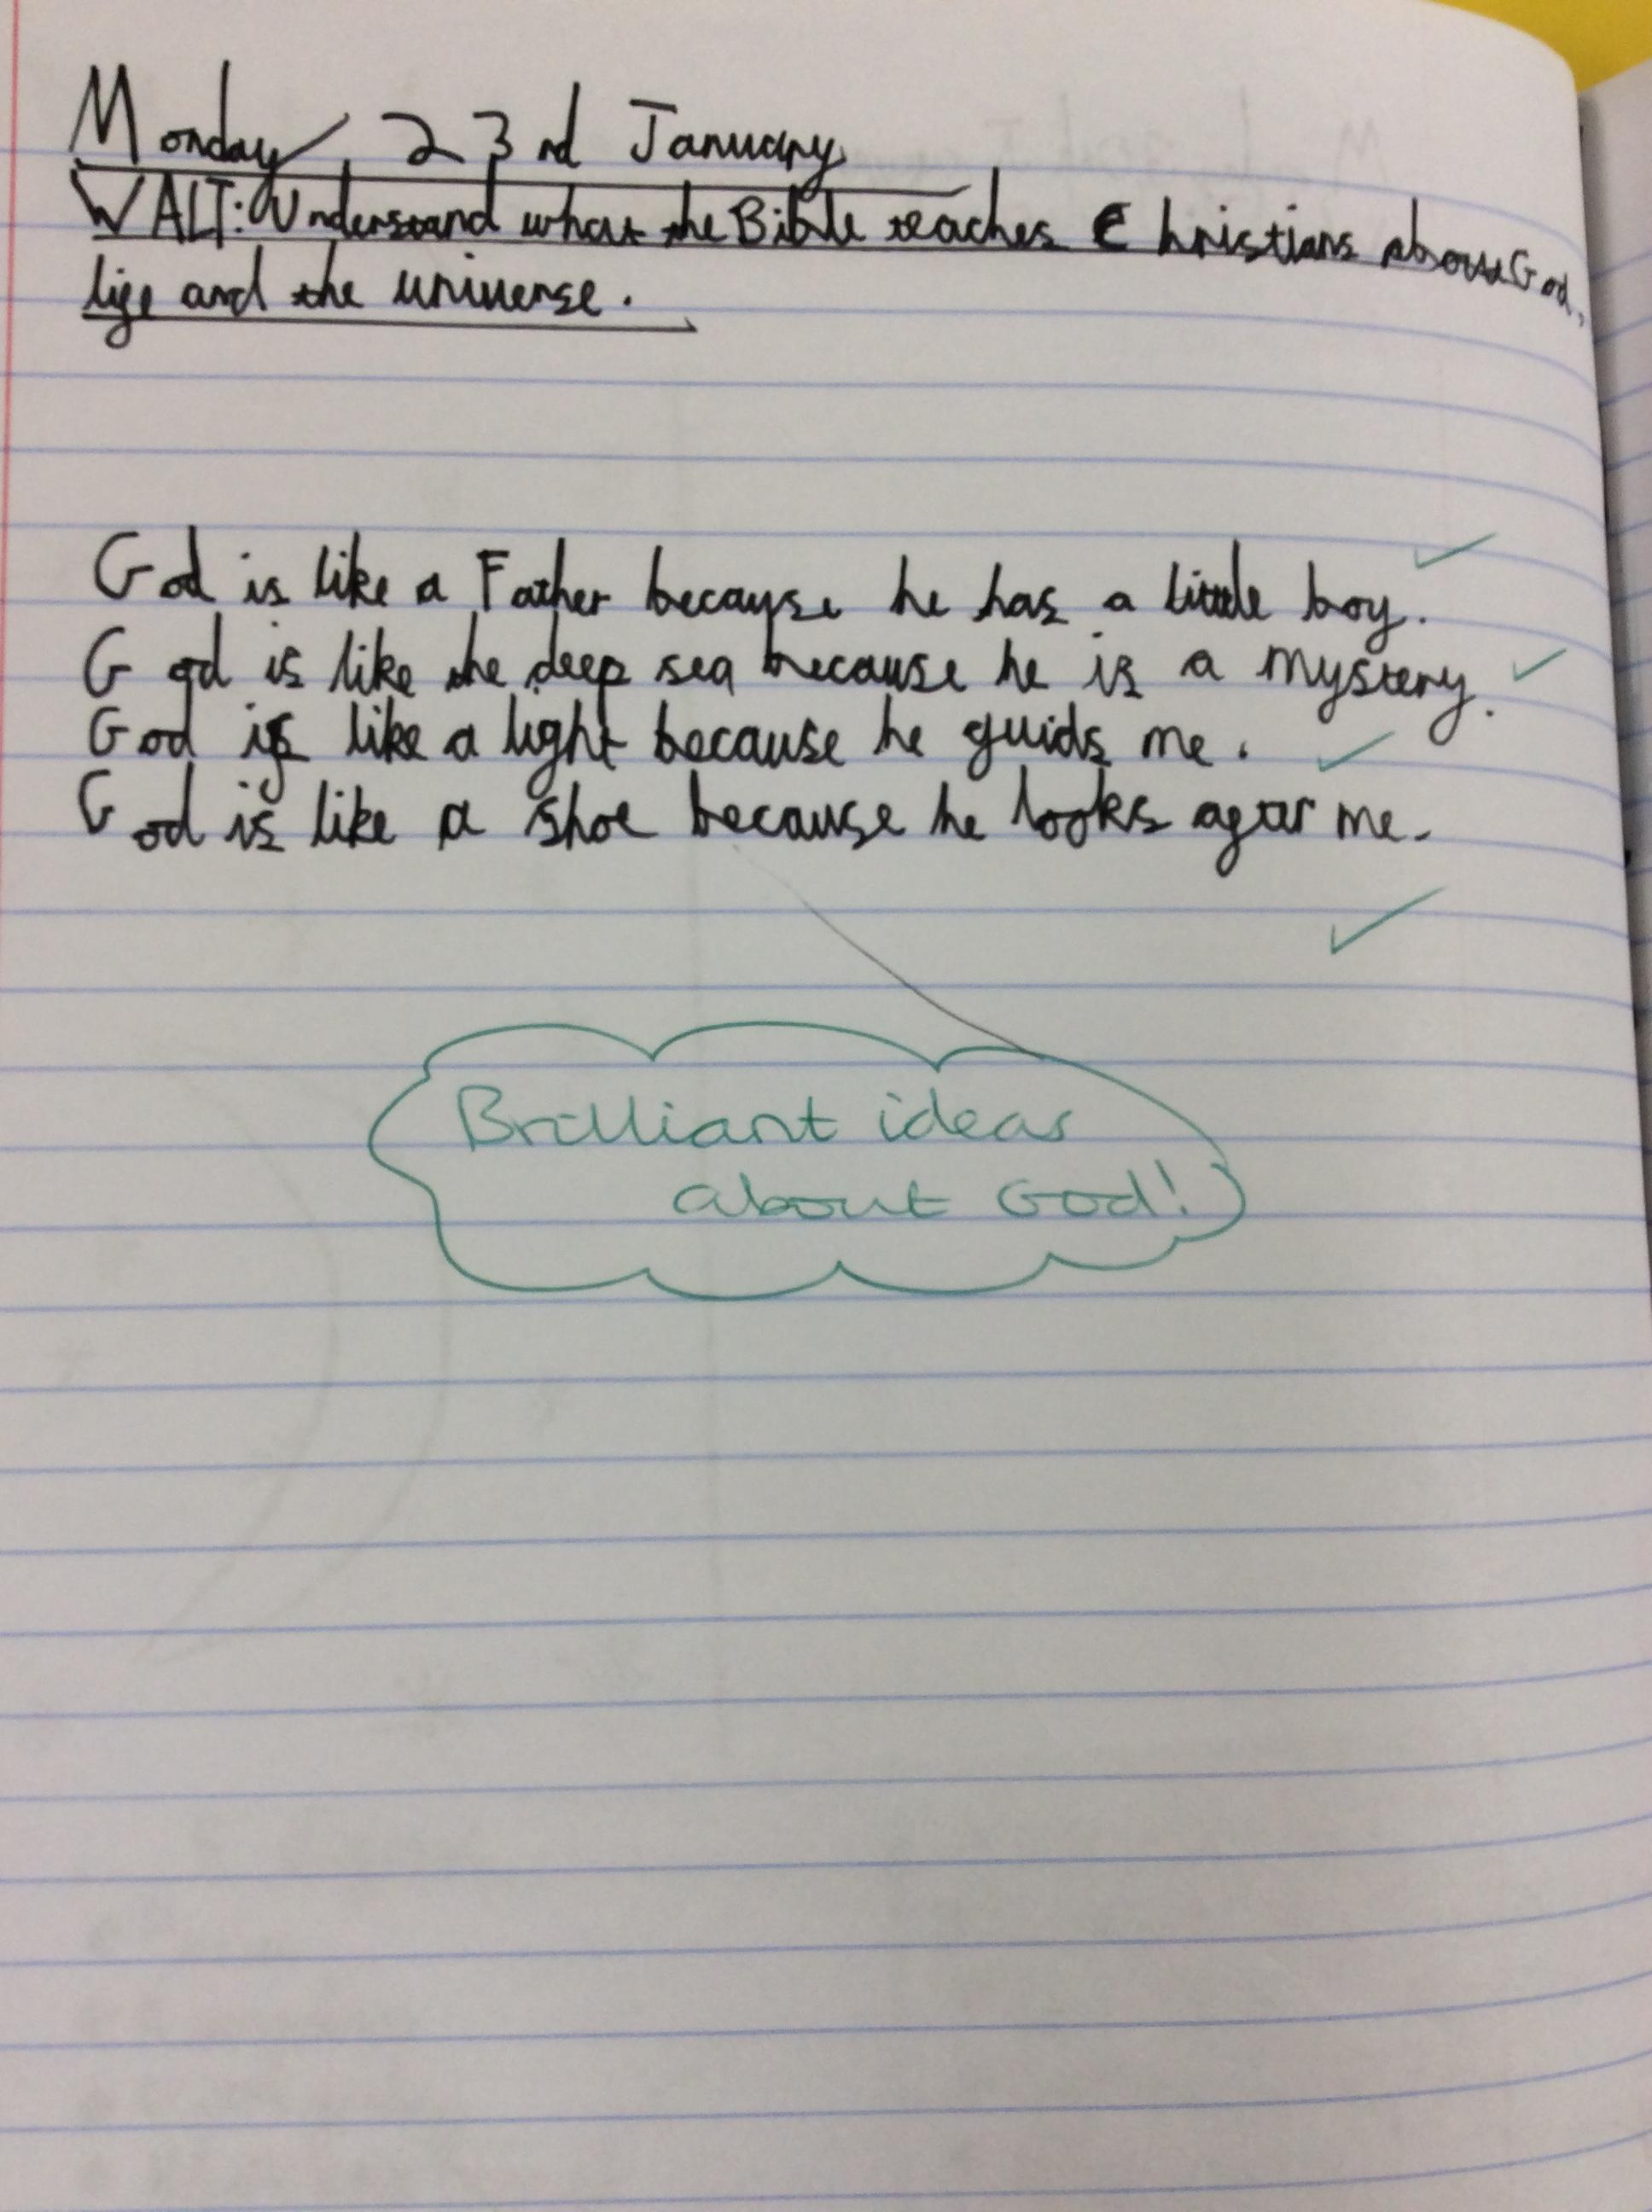 Monday, 23rd January
WALT: Understand what the Bible teaches Christians about God,
life and the universe.
God is like a Father because he has a little boy.
God is like the deep sea because he is a mystery.
God is like a light because he guids me.
God is like a shoe because he looks aftar me.
Brilliant ideas
about God!